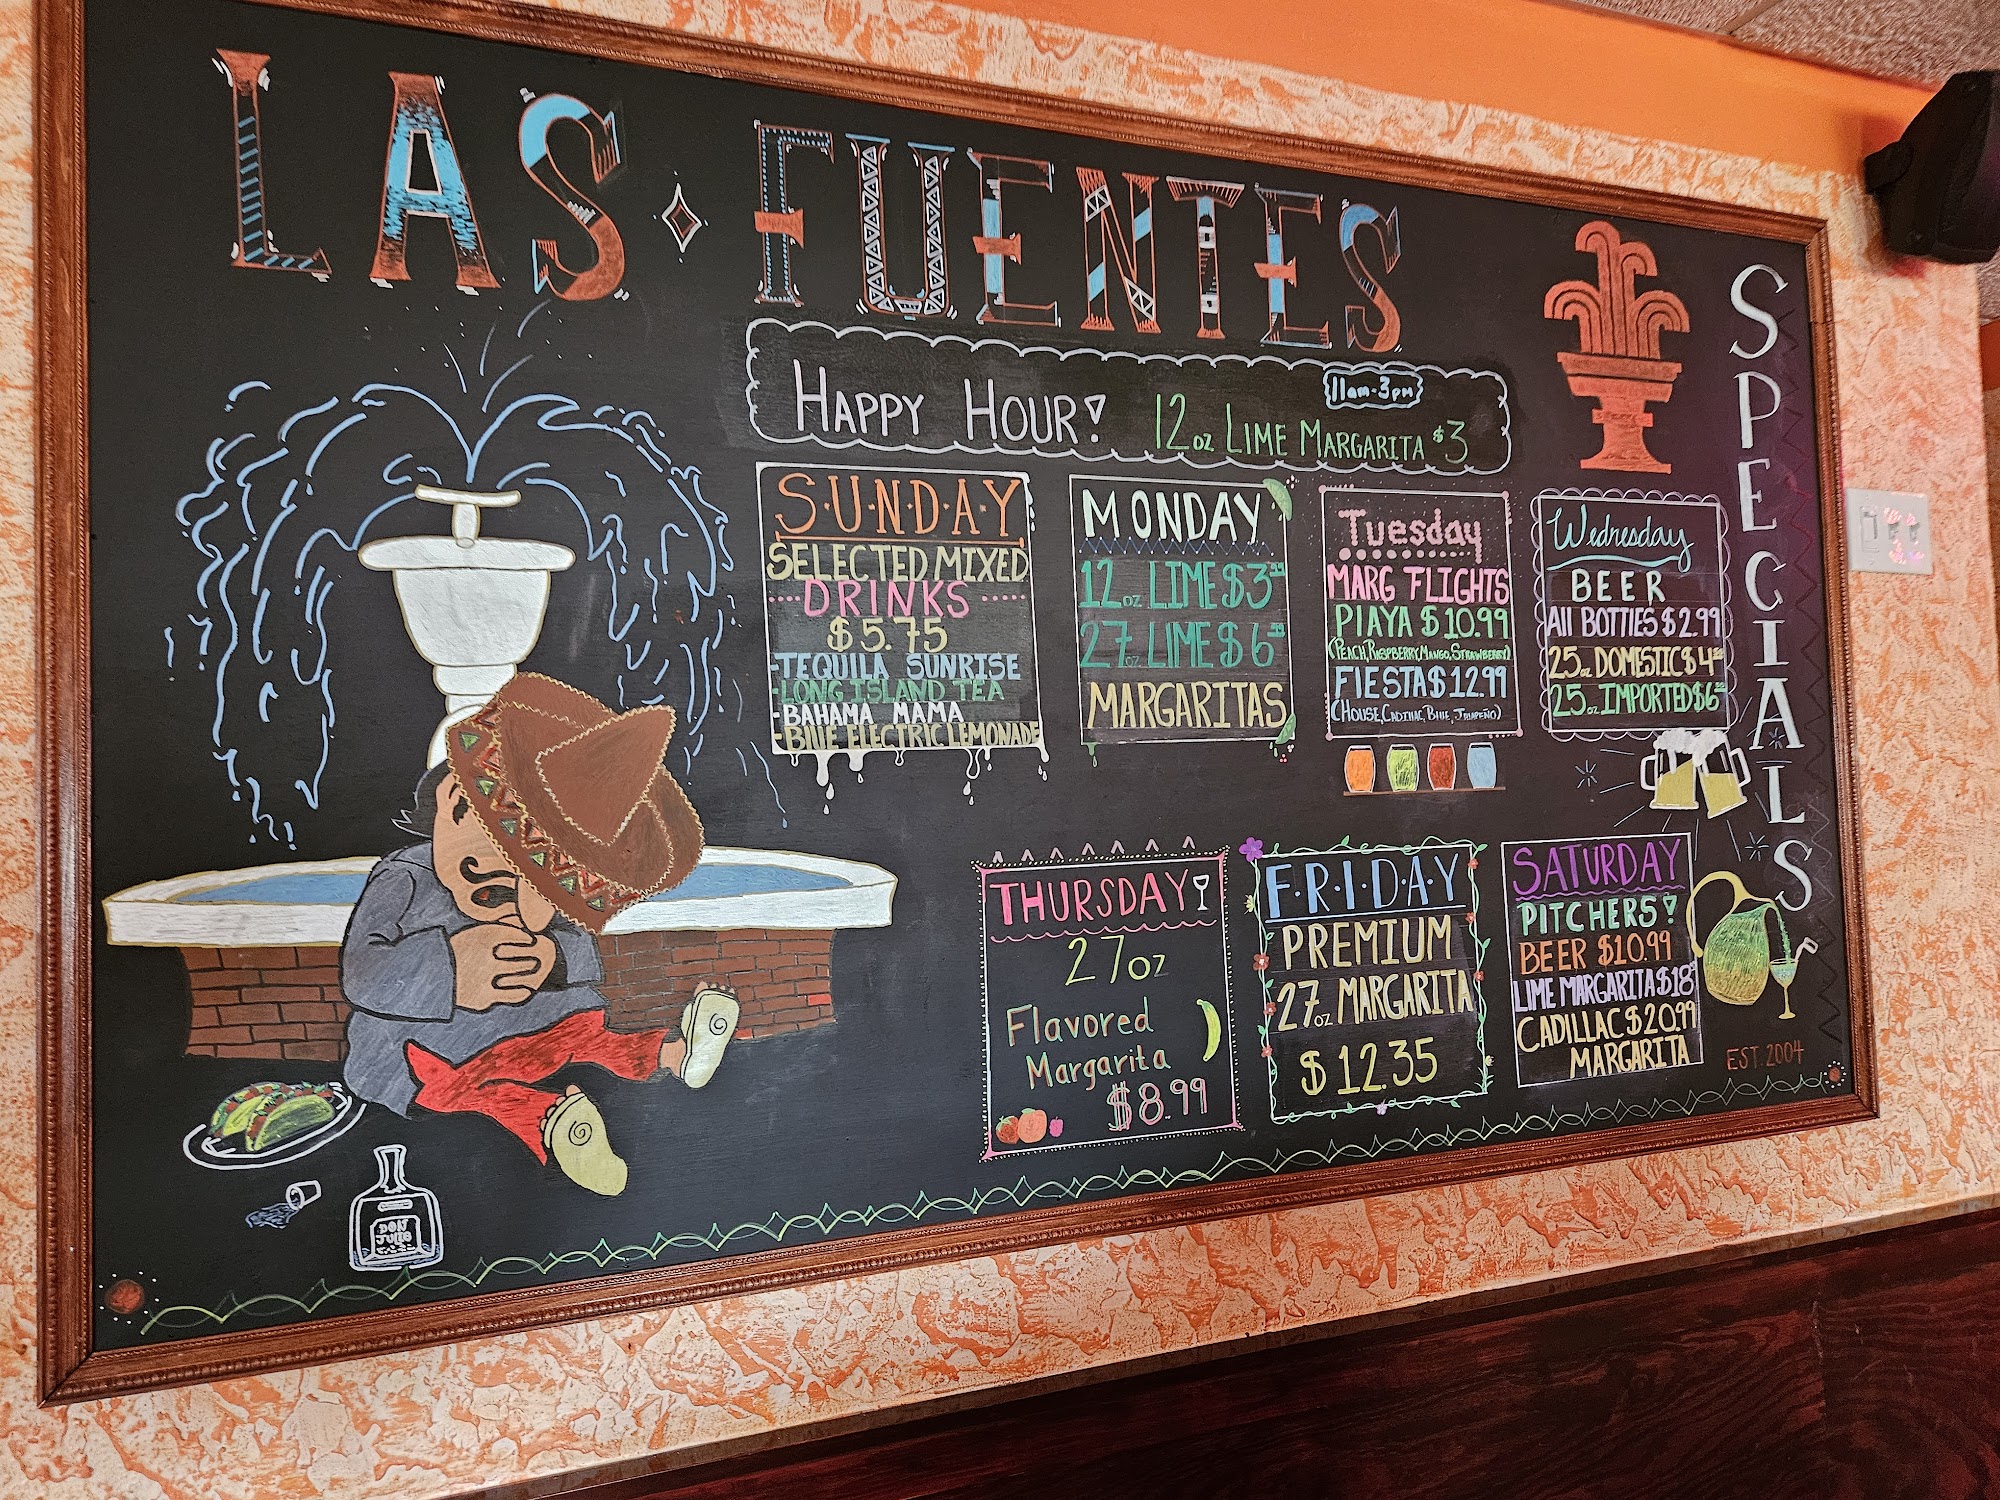 LAS FUENTES
SPECIALS
HAPPY HOUR!
11am-3pm
12oz LIME MARGARITA $3
S·U·N·D·A·Y
SELECTED MIXED
DRINKS
$5.75
-TEQUILA SUNRISE
-LONG ISLAND TEA
-BAHAMA MAMA
-BLUE ELECTRIC LEMONADE
MONDAY
12oz LIME $3.99
27oz LIME $6
MARGARITAS
Tuesday
MARG FLIGHTS
PLAYA $10.99
(PEACH, RASPBERRY, MANGO, STRAWBERRY)
FIESTA $12.99
(HOUSE, CADILLAC, BLUE, JALAPEÑO)
Wednesday
BEER
All BOTTLES $2.99
25oz DOMESTIC $4
25oz IMPORTED $6
THURSDAY
27oz
Flavored
Margarita
$8.99
F·R·I·D·A·Y
PREMIUM
27oz MARGARITA
$12.35
SATURDAY
PITCHERS!
BEER $10.99
LIME MARGARITA $18
CADILLAC $20.99
MARGARITA
EST. 2004
DON
JULIO